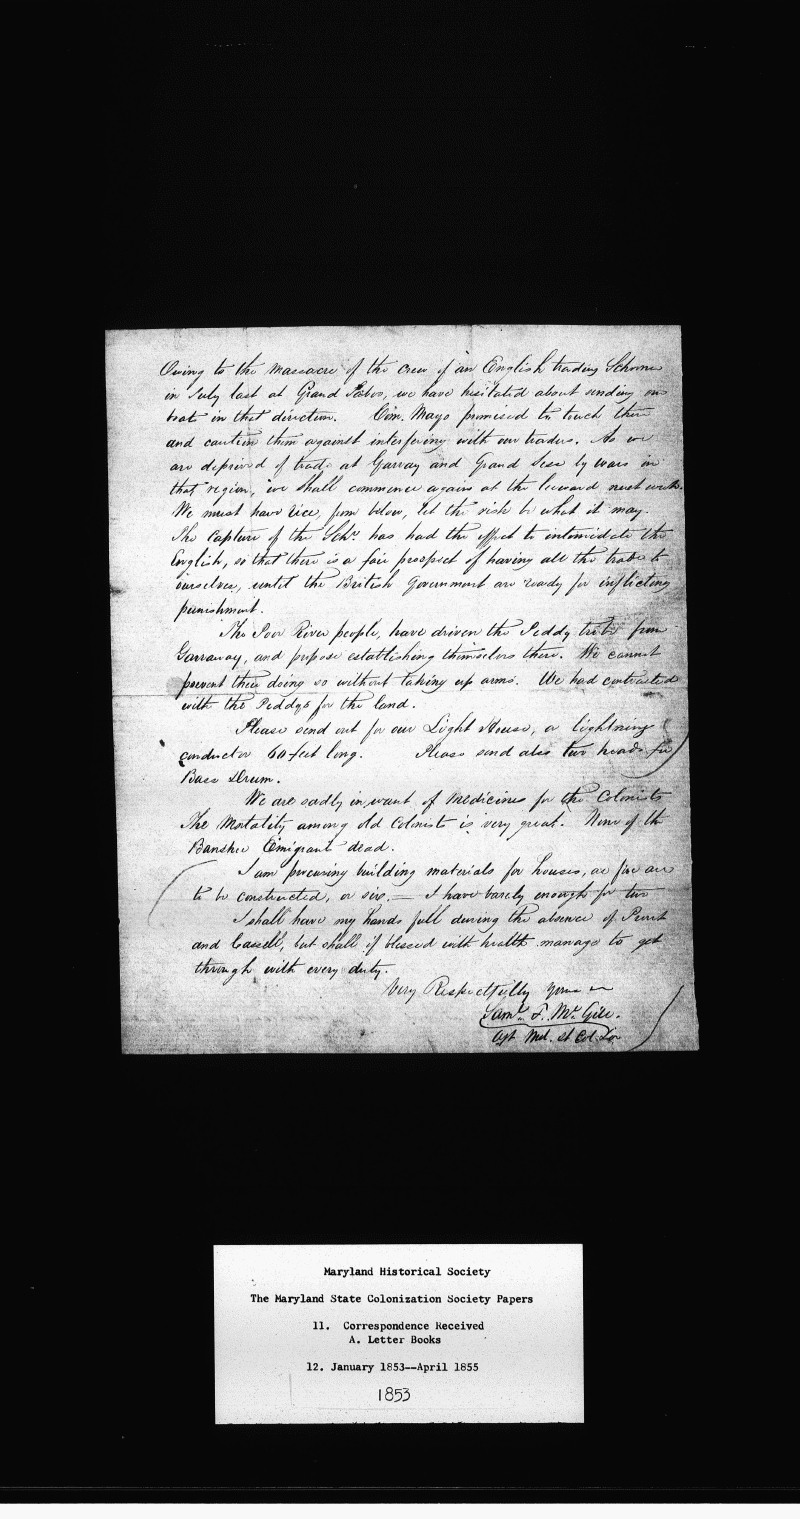 Owing to the massacre of the crew of an English trading Schooner
in July last at Grand Sesters, we have hesitated about sending our
boat in that direction. Com. Mayo promised to touch there
and caution them against interfering with our traders. As we
are deprived of trade at Garraway and Grand Sess by wars in
that region, we shall commence again at the leeward next week.
We must have rice, from below, let the risk be what it may.
The capture of the Schr. has had the effect to intimidate the
English, so that there is a fair prospect of having all the trade to
ourselves, until the British Government are ready for inflicting
punishment.
The Poor River people, have driven the Peddy tribe from
Garraway, and propose establishing themselves there. We cannot
prevent their doing so without taking up arms. We had contracted
with the Peddys for the land.
Please send out for our Light House, a lightning
conductor 60 feet long. Please send also two heads for
Bass Drum.
We are sadly in want of medicines for the Colonists
The Mortality among old Colonists is very great. None of the
Banshee Emigrants dead.
I am procuring building materials for houses, as five are
to be constructed, or six. — I have barely enough for two
I shall have my hands full during the absence of Prout
and Cassell, but shall if blessed with health manage to get
through with every duty.
Very Respectfully yours
Saml. F. Mc Gill.
Agt Md. St Col. So
Maryland Historical Society
The Maryland State Colonization Society Papers
11. Correspondence Received
A. Letter Books
12. January 1853--April 1855
1853